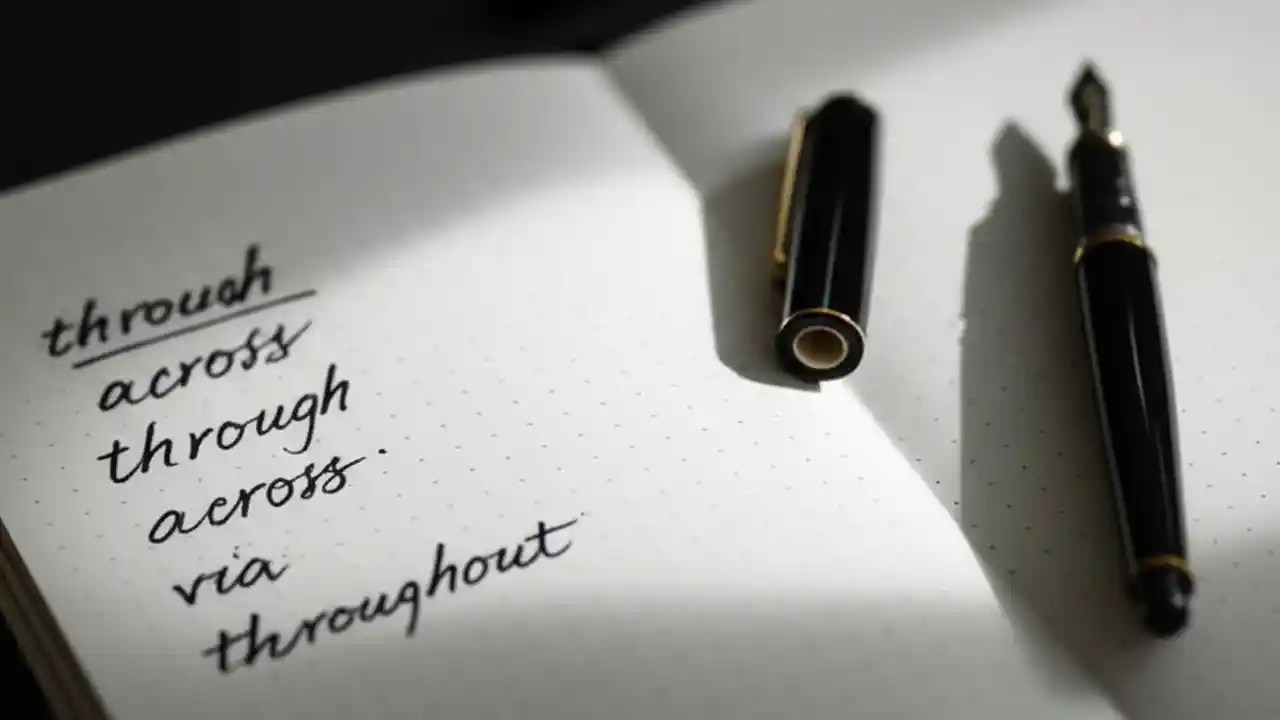 through
across
through
across.
via
throughout